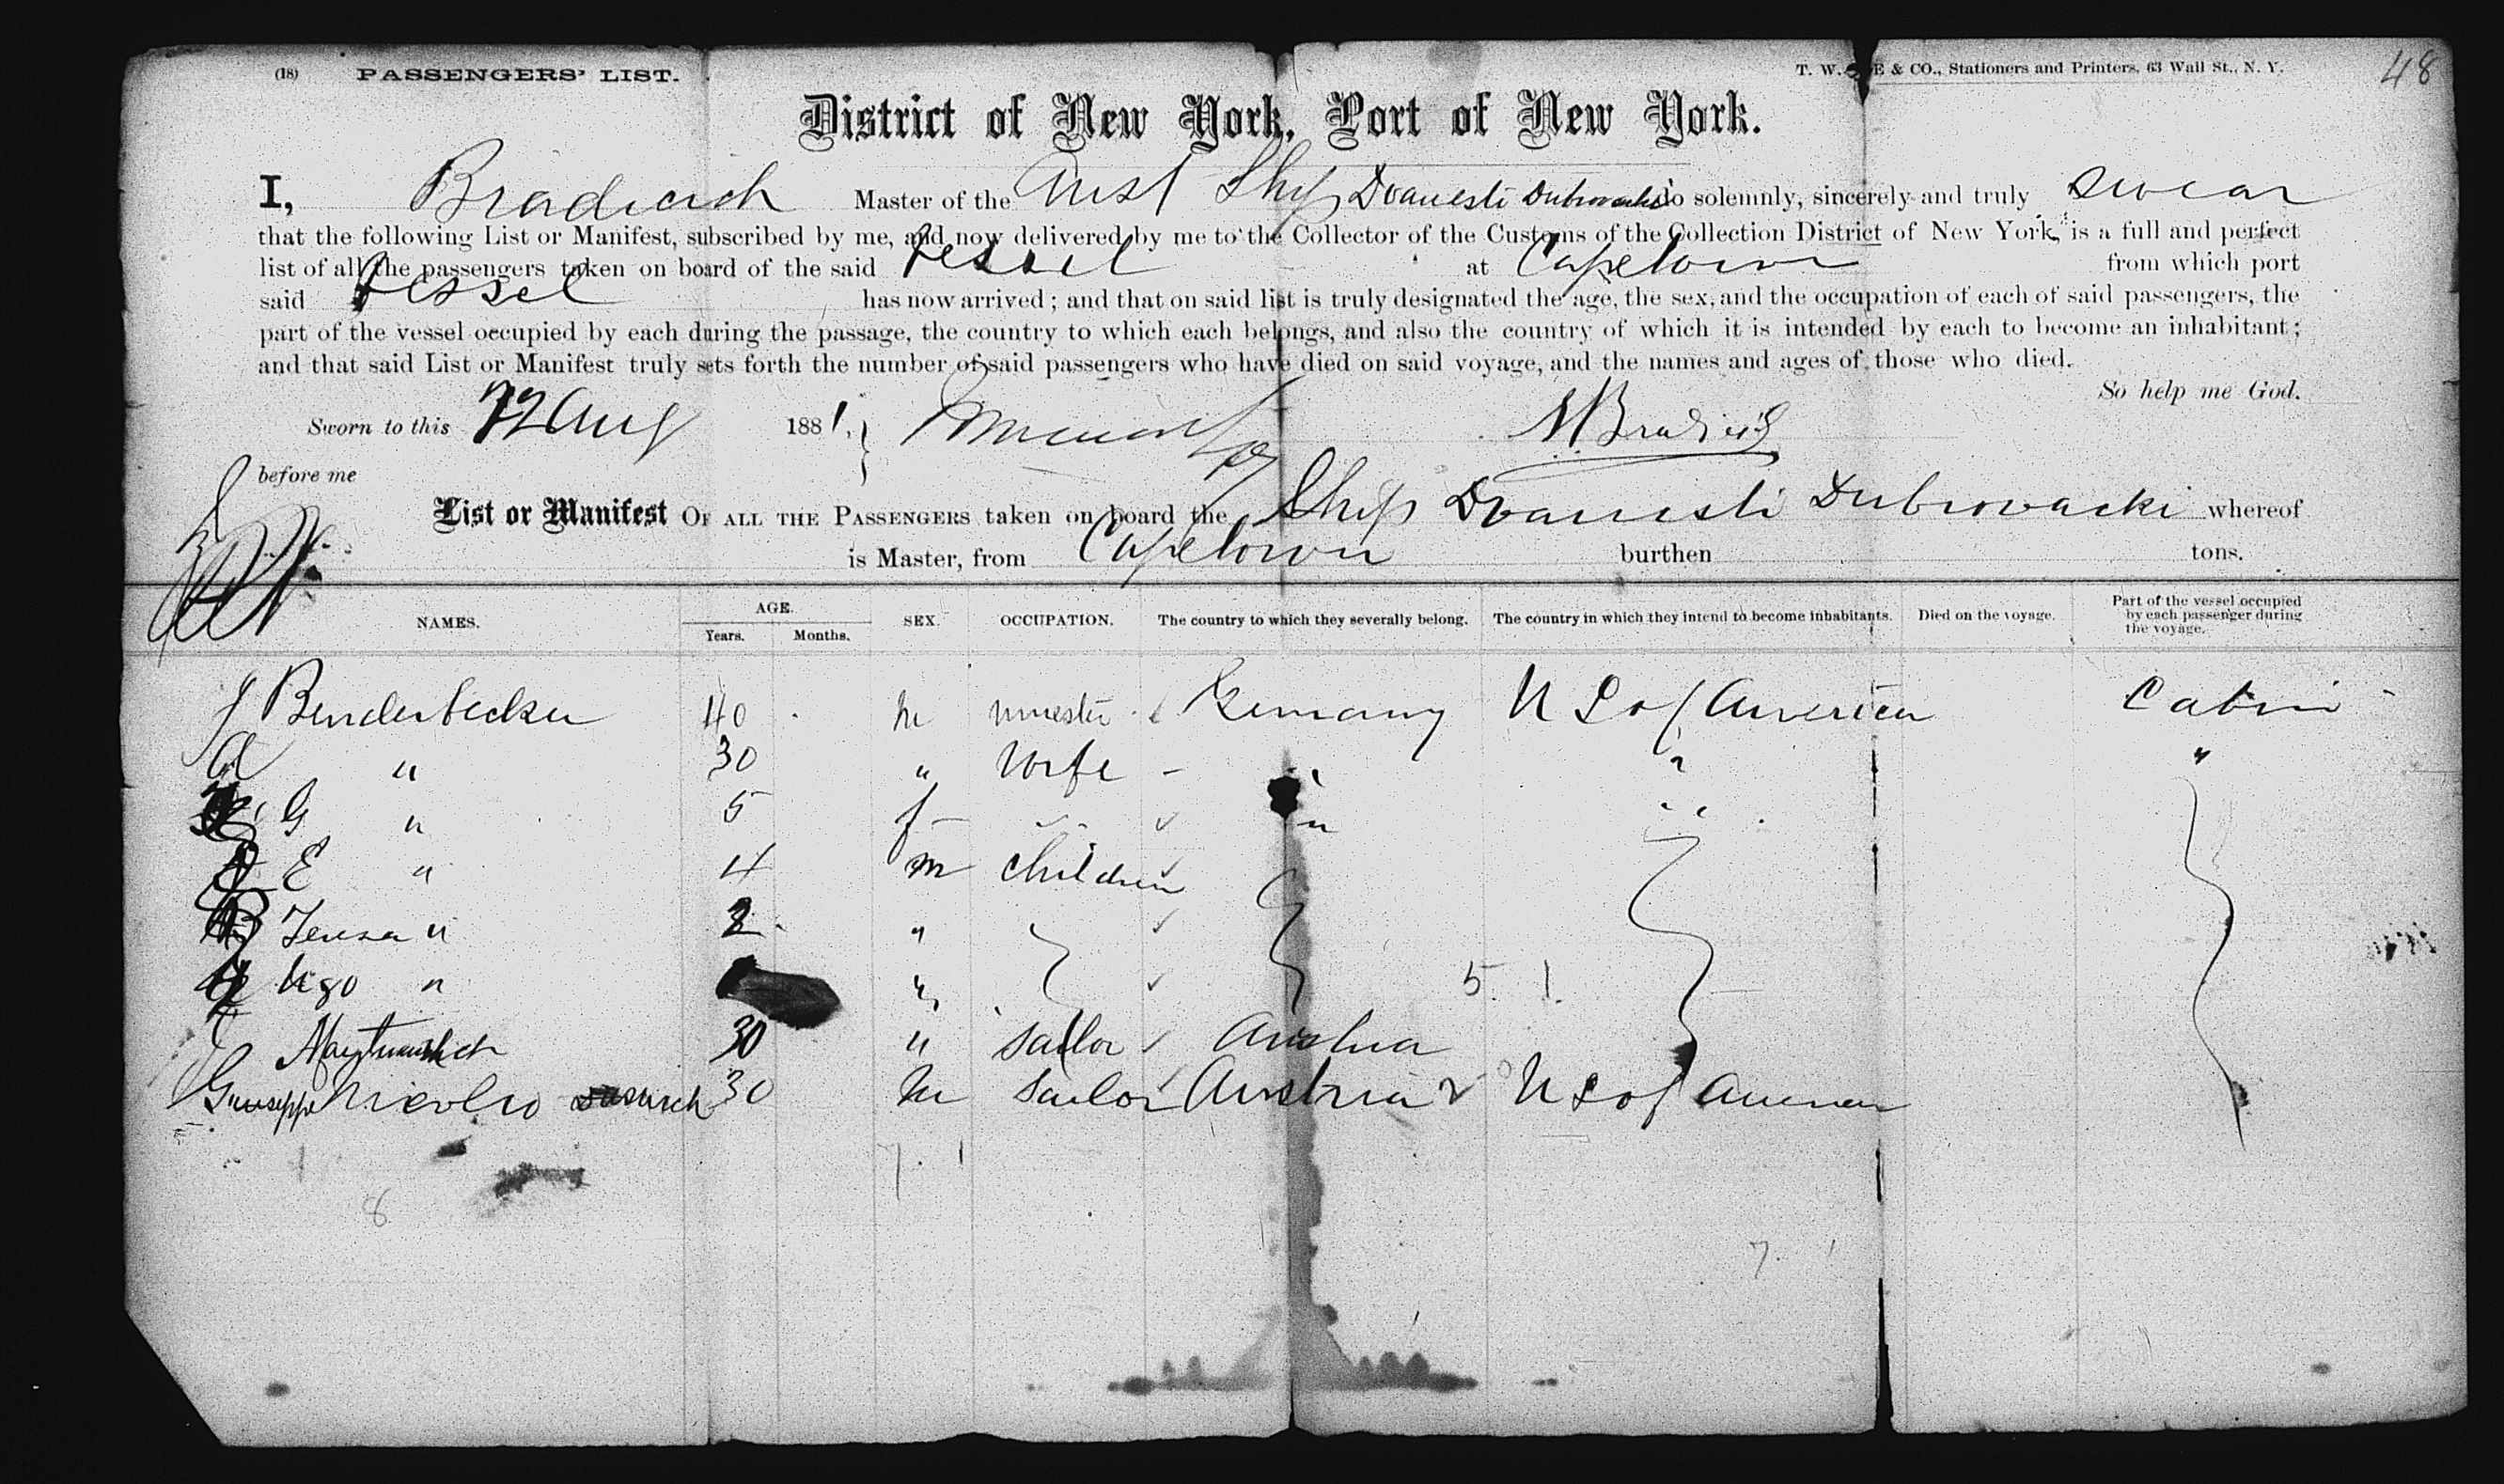 (18) PASSENGERS' LIST. T. W. & CO., Stationers and Printers, 63 Wall St., N. Y. 48
District of New York, Port of New York.
I, Master of the Aust Ship Dvanesti Dubrovacki do solemnly, sincerely and truly swear
that the following List or Manifest, subscribed by me, and now delivered by me to the Collector of the Customs of the Collection District of New York, is a full and perfect
list of all the passengers taken on board of the said Vessel at Capetown from which port
said Vessel has now arrived; and that on said list is truly designated the age, the sex, and the occupation of each of said passengers, the
part of the vessel occupied by each during the passage, the country to which each belongs, and also the country of which it is intended by each to become an inhabitant;
and that said List or Manifest truly sets forth the number of said passengers who have died on said voyage, and the names and ages of those who died.
So help me God.
Sworn to this 22 Aug 1881,
before me
List or Manifest OF ALL THE PASSENGERS taken on board the Ship Dvanesti Dubrovacki whereof
is Master, from Capetown burthen tons.
NAMES. AGE. Years. Months. SEX. OCCUPATION. The country to which they severally belong. The country in which they intend to become inhabitants. Died on the voyage. Part of the vessel occupied by each passenger during the voyage.
J Benderbecker 40 m Germany U S of America Cabin
A " 30 " Wife - " " "
G " 5 f " "
E " 4 m Children
Teresa " 2 "
Ugo " " 5. 1.
30 " Sailor Austria
Giuseppe Nicolio 30 m Sailor Austria U S of America
7. 1
8
7. 1